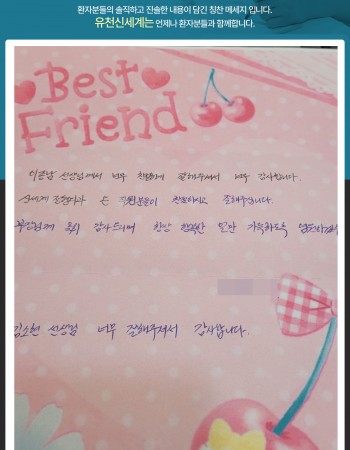 환자분들의 솔직하고 진솔한 내용이 담긴 칭찬 메세지 입니다.
유천신세계는 언제나 환자분들과 함께합니다.
Best
Friend
선생님께서 너무 친절하게 잘해주셔서 너무 감사합니다.
직원분들이 친절하시고 잘해주십니다.
감사드리며 항상 행복한 일만 가득하도록
김소현 선생님 너무 잘해주셔서 감사합니다.